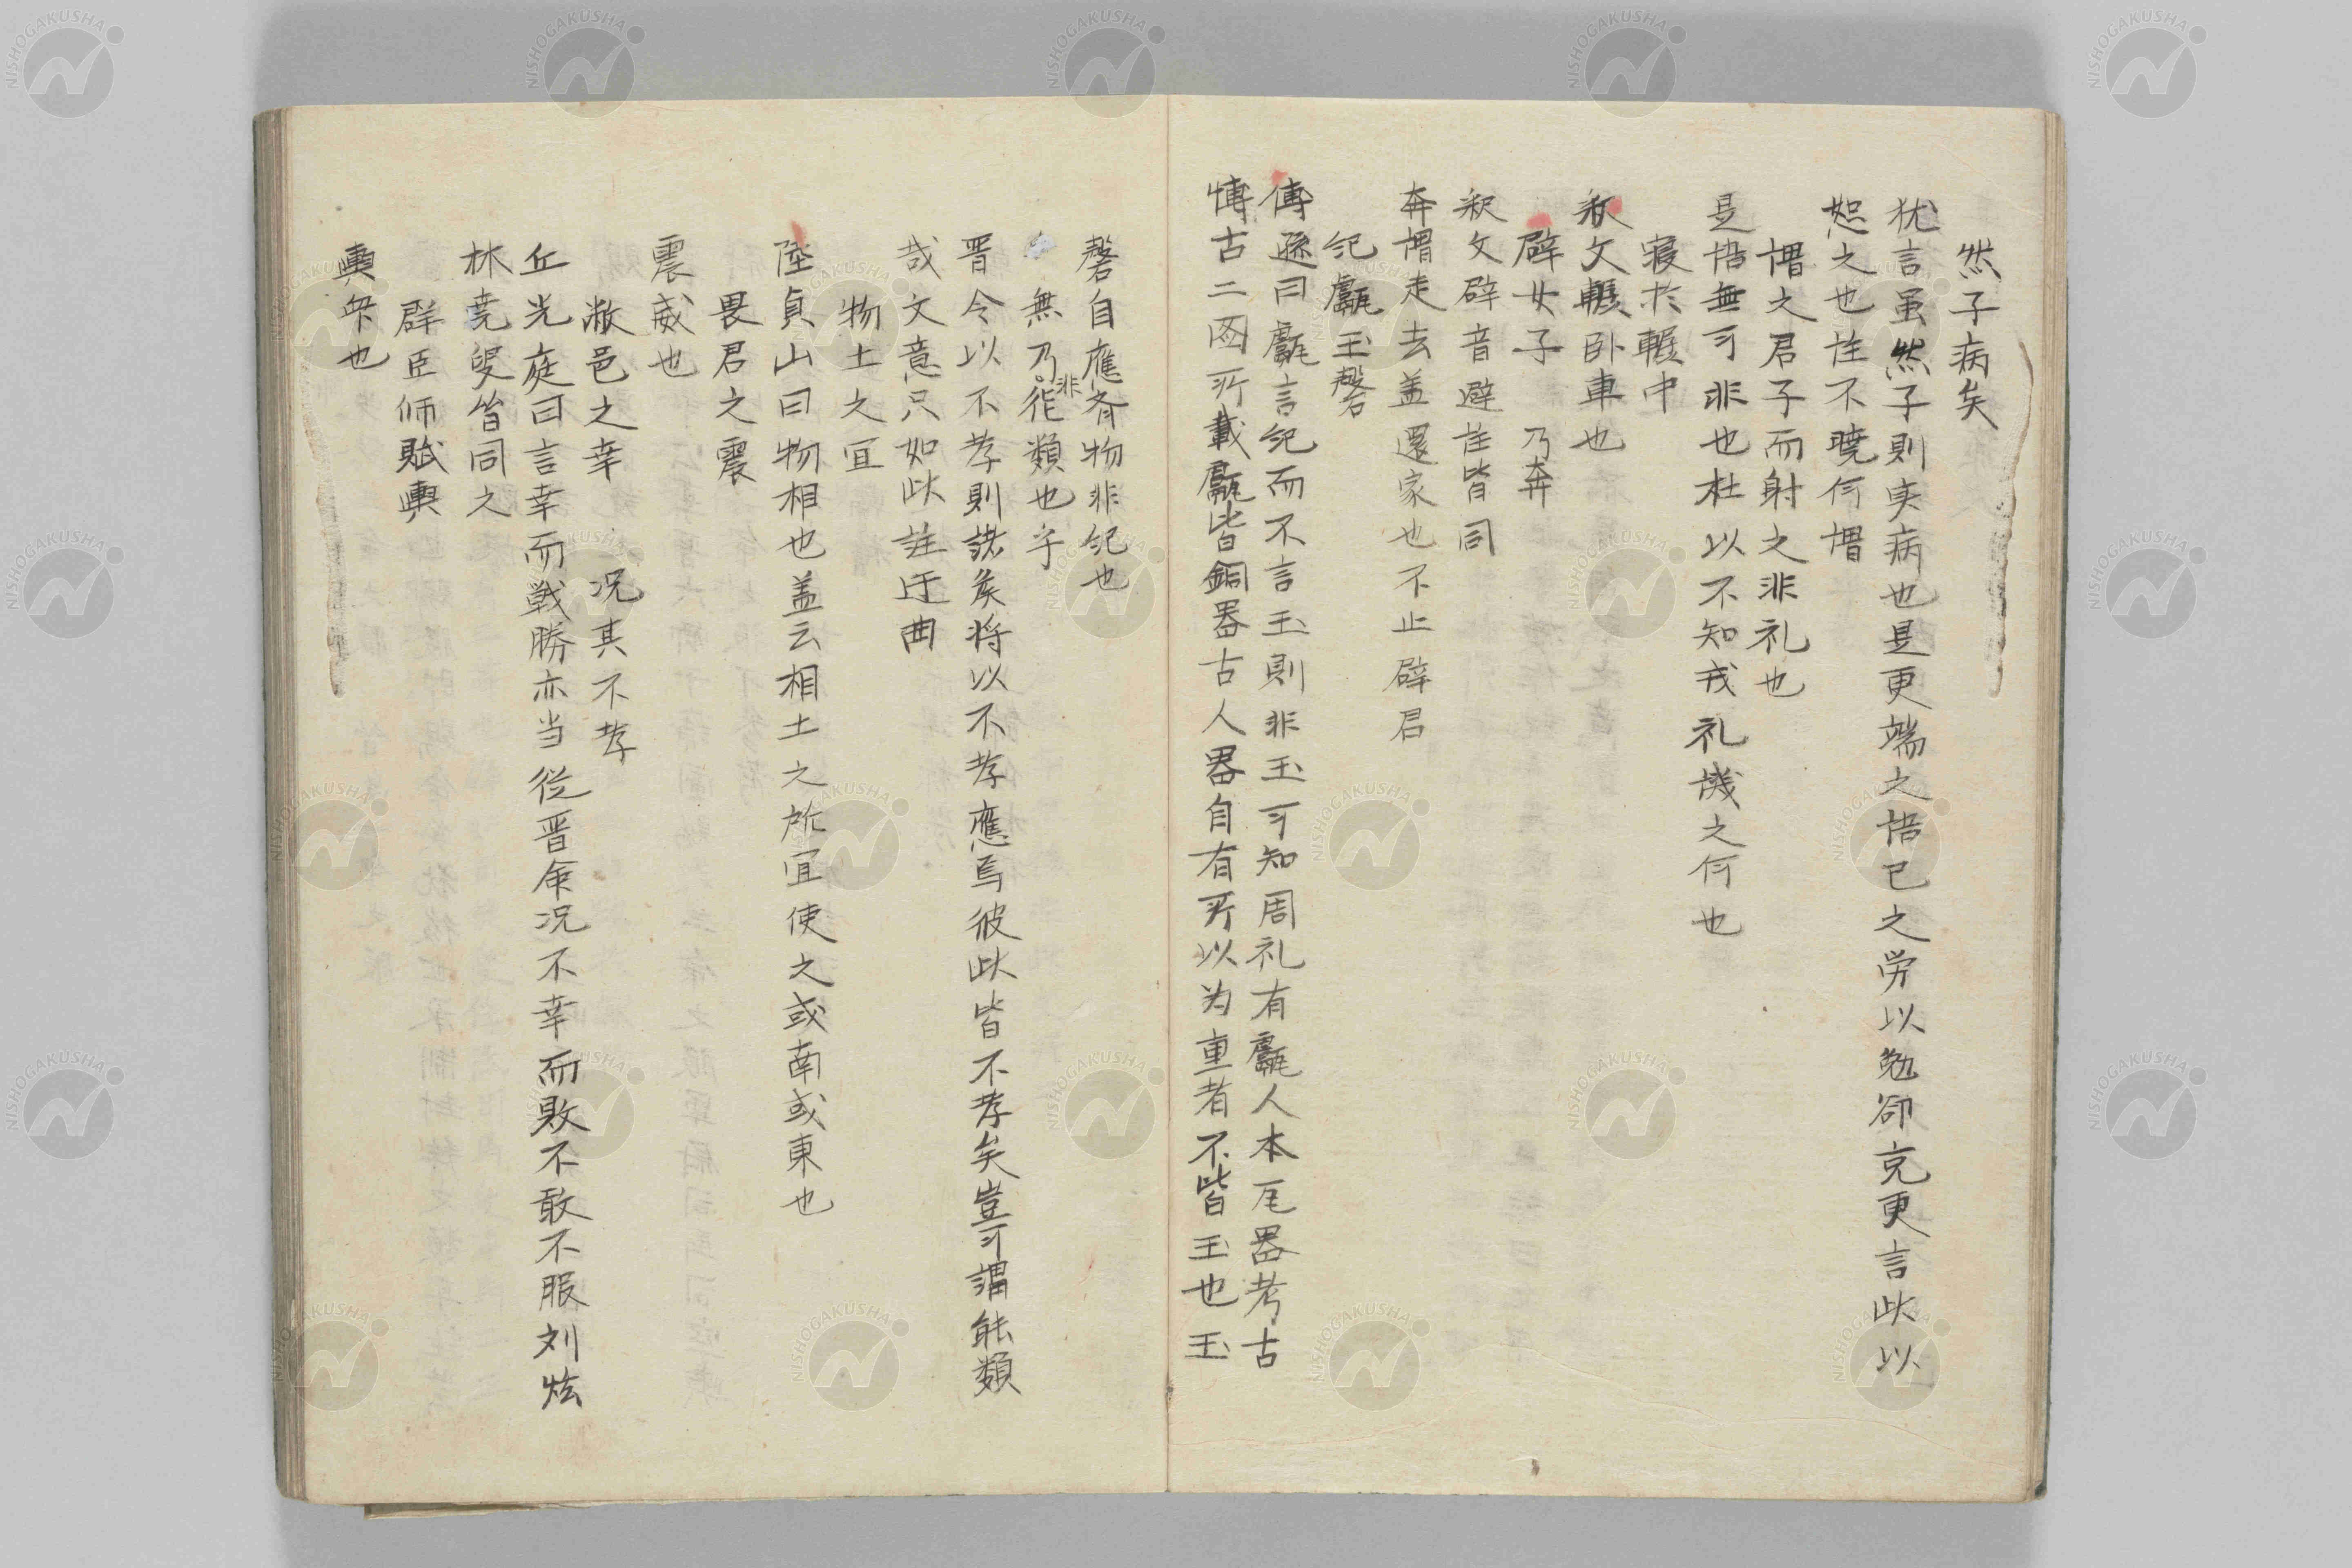 然子病矣
犹言虽然子則実病也是更端之語已之労以勉卻克更言此以
恕之也注不曉何謂
謂之君子而射之非礼也
是語無可非也杜以不知戎礼譏之何也
寝於轏中
釈文轏卧車也
辟女子 乃奔
釈文辟音避注皆同
奔謂走去盖還家也不止辟君
紀甗玉磬
傅遜曰甗言紀而不言玉則非玉可知周礼有甗人本瓦器考古
博古二図所載甗皆銅器古人器自有所以为重者不皆玉也玉
磬自應斉物非紀也
無乃非德類也乎
晋令以不孝則諸矦将以不孝應焉彼此皆不孝矣豈可謂能類
哉文意只如此註迂曲
物土之宜
陸貞山曰物相也盖云相土之所宜使之或南或東也
畏君之震
震威也
敝邑之幸 况其不孝
丘光庭曰言幸而戦勝亦当從晋命况不幸而敗不敢不服刘炫
林尭叟皆同之
群臣师賦輿
輿衆也
NISHOGAKUSHA